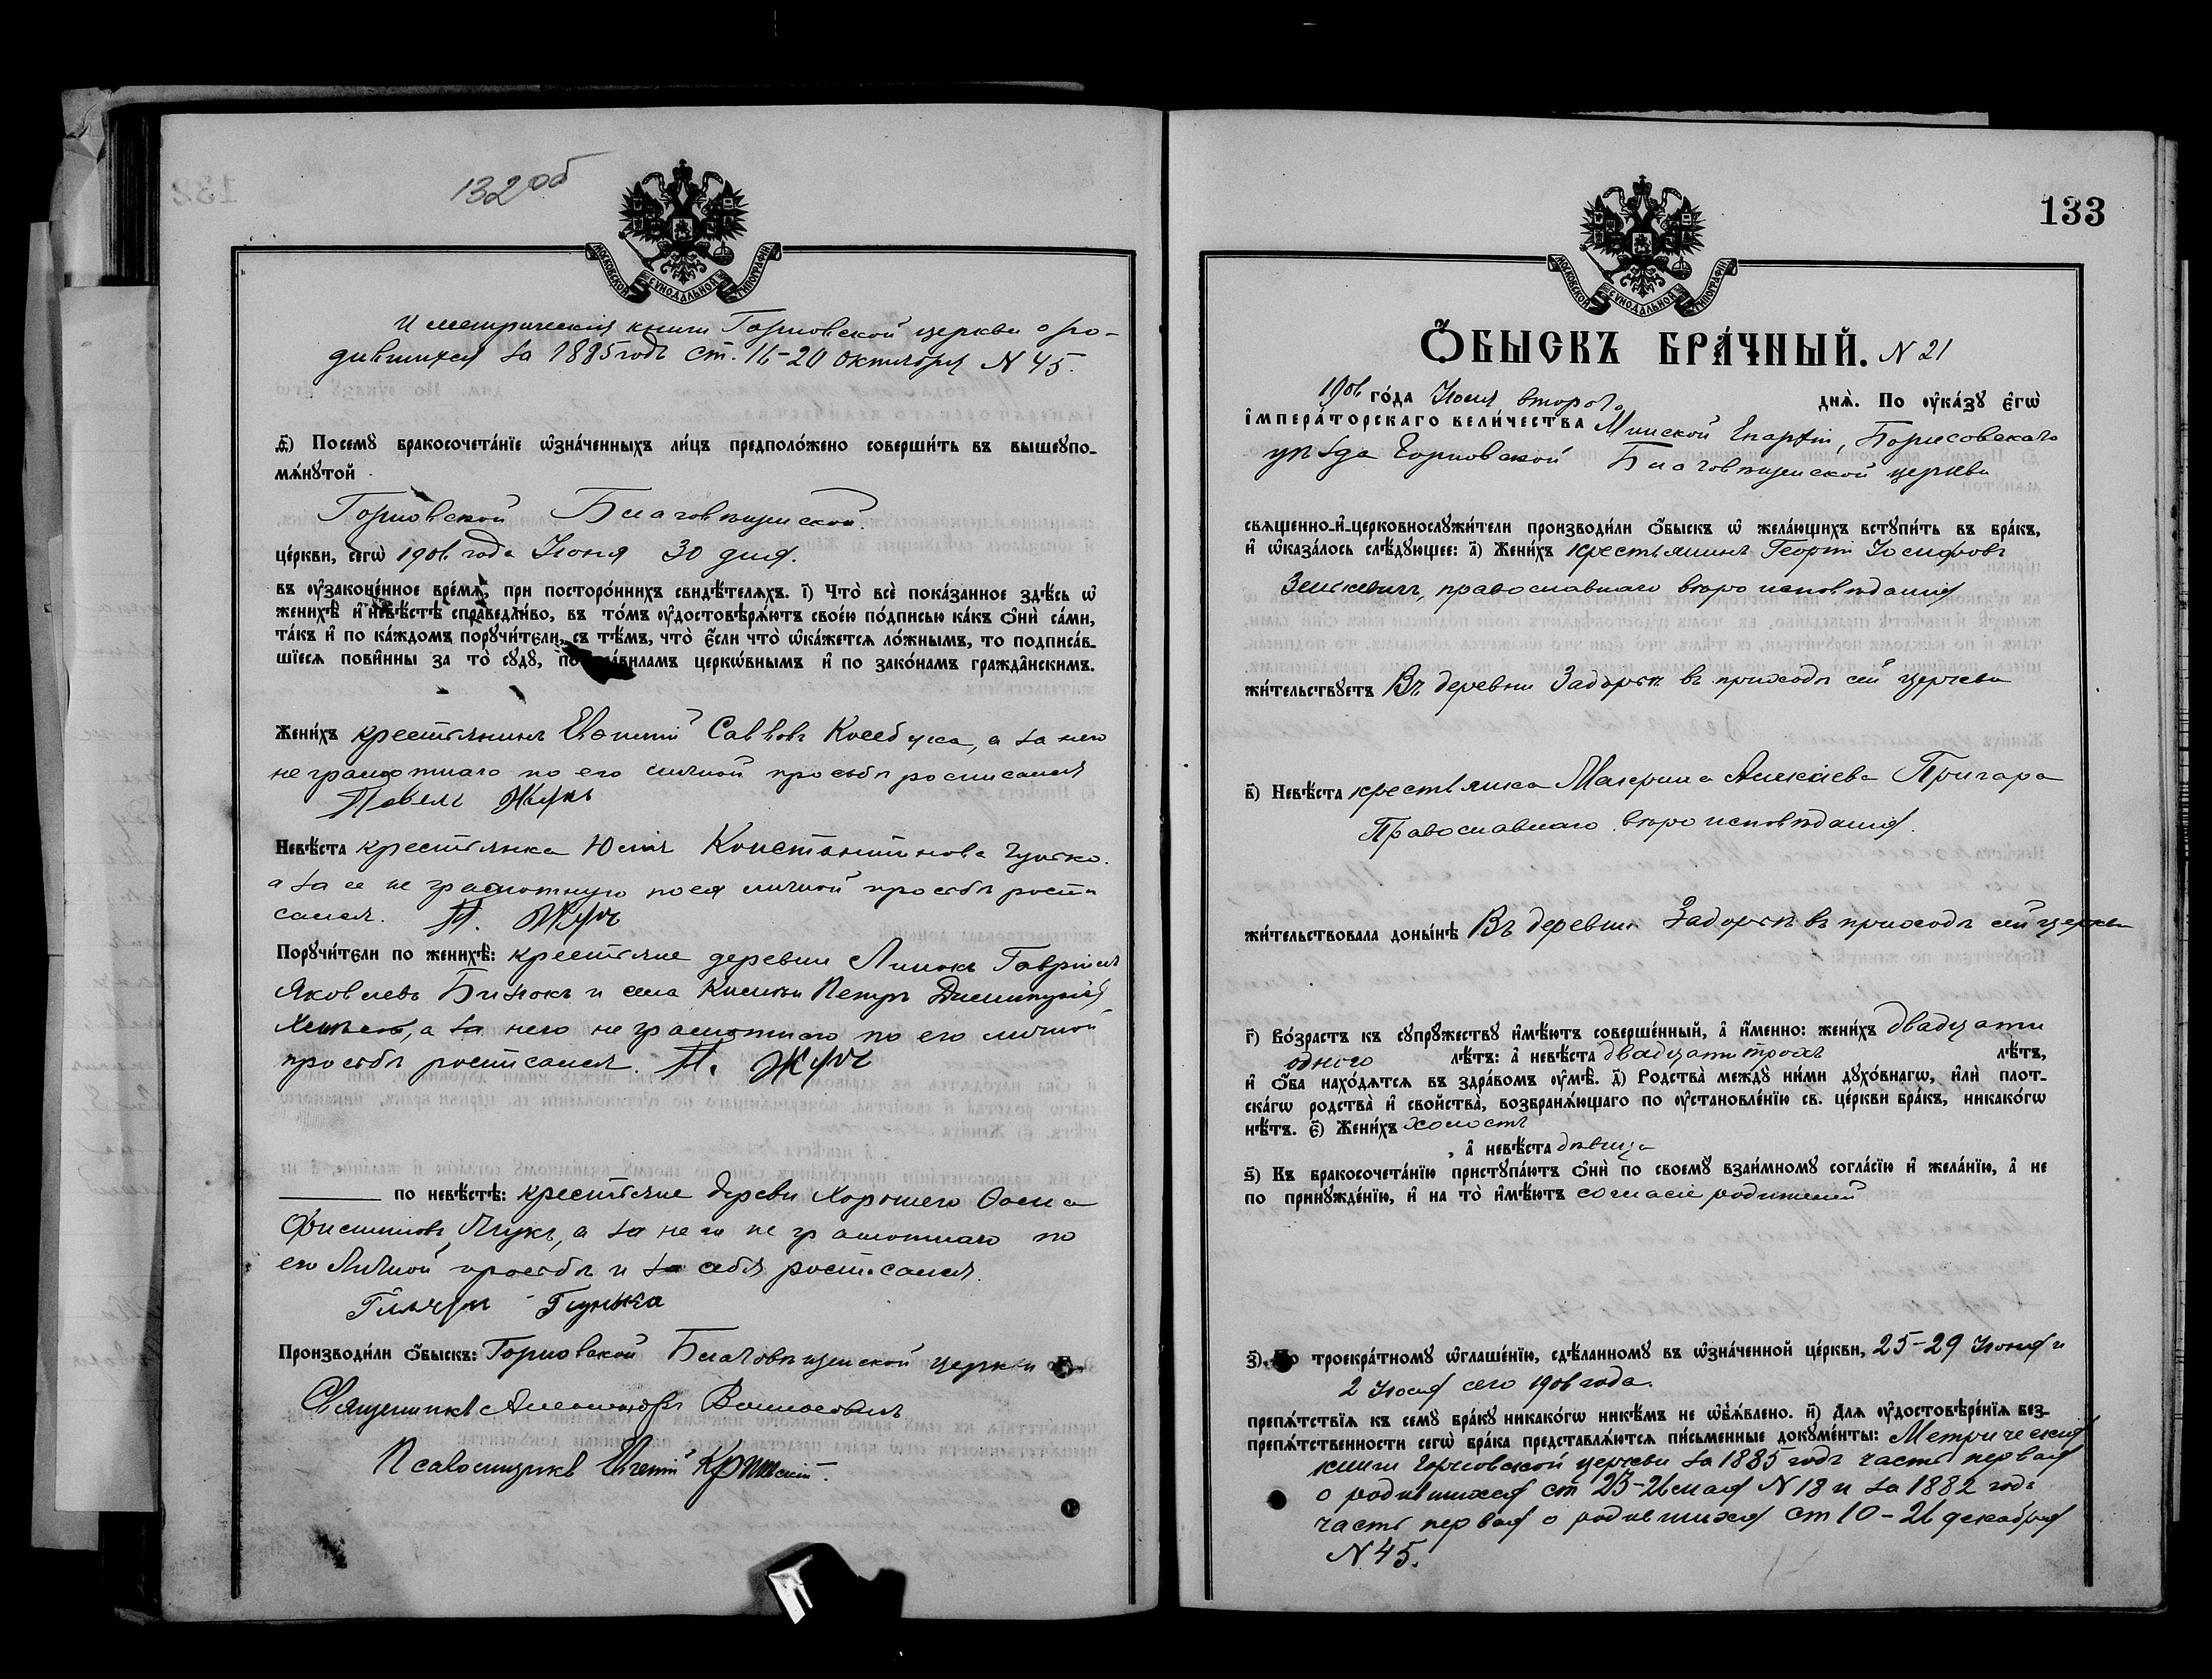 132 об
МОСКОВСКОЙ СѴНОДАЛЬНОЙ ТИПОГРАФІИ
И метрическія книги Горновской церкви о ро-
дившихся за 1885 годъ ст. 16-20 Октября N 45.
ѕ҃) Посемꙋ бракосочета́нїе ѡ҆зна́ченныхъ ли́цъ предполо́жено соверши́ть въ вышеꙋпо-
мѧ́нꙋтой
Горновской Благовѣщенской
це́ркви, сегѡ̀ 1906 года Июня 30 дня.
въ ᲂу҆зако́ненное вре́мѧ, при посторо́ннихъ свидѣ́телѧхъ. і҃) Что̀ всѐ пока́занное здѣ́сь ѡ҆
женихѣ̀ и҆ невѣ́стѣ справедли́во, въ то́мъ ᲂу҆достовѣрѧ́ютъ свое́ю по́дписью ка́къ ѻ҆нѝ са́ми,
та́къ и҆ по ка́ждомъ порꙋчи́тели, съ тѣ́мъ, что̀ є҆́сли что̀ ѡ҆ка́жетсѧ ло́жнымъ, то подписа́в-
шїесѧ пови́нны за то̀ сꙋдꙋ̀, по пра́виламъ церкѡ́внымъ и҆ по зако́намъ гражда́нскимъ.
Жени́хъ крестьянинъ Саввовъ а за него
неграмотнаго по его личной просьбѣ росписался
Павелъ Жукъ
Невѣ́ста крестьянка Юлія Константинова
а за ее не грамотную по ея личной просьбѣ роспи
сался. П. Жукъ
Порꙋчи́тели по женихѣ̀: крестьяне деревни Гавріилъ
Яковлевъ и села Петръ
а за него не грамотнаго по его личной
просьбѣ росписался. П. Жукъ
по невѣ́стѣ: крестьяне дереви Хорошего
Жукъ, а за него не грамотнаго по
его личной просьбѣ и за себя росписался.
Производи́ли ѻ҆́быскъ: Горновской Благовѣщенской церкви
Священникъ Александръ
Псаломщикъ Евгеній
133
МОСКОВСКОЙ СѴНОДАЛЬНОЙ ТИПОГРАФІИ
Ѻ҆́БЫСКЪ БРА́ЧНЫЙ. N 21
1906 го́да Июля второго днѧ̀. По ᲂу҆ка́зꙋ є҆гѡ̀
і҆мпера́торскаго вели́чества Минской Епархіи, Борисовскаго
уѣзда Горновской Благовѣщенской церкви
свѧщенно-и҆-церковнослꙋжи́тели производи́ли ѻ҆́быскъ ѡ҆ жела́ющихъ встꙋпи́ть въ бра́къ,
и҆ ѡ҆каза́лось слѣ́дꙋющее: а҃) Жени́хъ крестьянинъ Георгій Иосифовъ
Зенкевичъ, православнаго вѣроисповѣданія
жи́тельствꙋетъ Въ деревни Задорьѣ въ приходѣ сей церкви
в҃) Невѣ́ста крестьянка Макрина Алексѣева Пригара
Православнаго вѣроисповѣданія.
жи́тельствовала доны́нѣ Въ деревни Задорьѣ въ приходѣ сей церкви
г҃) Во́зрастъ къ сꙋпрꙋ́жествꙋ и҆мѣ́ютъ соверше́нный, а҆ и҆́менно: жени́хъ двадцати
одного лѣ́тъ: а҆ невѣ́ста двадцати трохъ лѣ́тъ,
и҆ ѻ҆́ба нахо́дѧтсѧ въ здра́вомъ ᲂу҆мѣ̀. д҃) Родства̀ междꙋ̀ ни́ми дꙋхо́внагѡ, и҆лѝ плот-
ска́гѡ родства̀ и҆ сво́йства̀, возбранѧ́ющаго по ᲂу҆становле́нїю св. це́ркви бра́къ, никако́гѡ
нѣ́тъ. є҃) Жени́хъ холостъ
, а҆ невѣ́ста дѣвица
ѕ҃) Къ бракосочета́нїю пристꙋпа́ютъ ѻ҆нѝ по своемꙋ̀ взаи́мномꙋ согла́сїю и҆ жела́нїю, а҆ не
по принꙋжде́нїю, и҆ на то̀ и҆мѣ́ютъ согласіе родителей
з҃) По троекра́тномꙋ ѡ҆глаше́нїю, сдѣ́ланномꙋ въ ѡ҆зна́ченной це́ркви, 25-29 Июня и
2 Июля сего 1906 года.
препѧ́тствїѧ къ семꙋ̀ бра́кꙋ никако́гѡ никѣ́мъ не ѡ҆б̾ѧ́влено. и҃) Длѧ ᲂу҆достовѣре́нїѧ без-
препѧ́тственности сегѡ̀ бра́ка представлѧ́ютсѧ пи́сьменные докꙋме́нты: Метрическія
книги Горновской церкви за 1885 годъ часть первая
о родившихся ст 23-26 мая N 18 и за 1882 годъ
часть первая о родившихся ст 10-26 декабря
N 45.